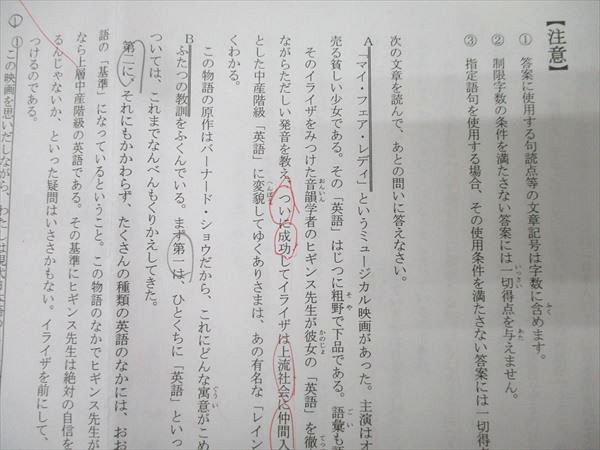 【注意】
① 答案に使用する句読点等の文章記号は字数に含めます。
② 制限字数の条件を満たさない答案には一切得点を与えません。
③ 指定語句を使用する場合、その使用条件を満たさない答案には一切得
次の文章を読んで、あとの問いに答えなさい。
A 「マイ・フェア・レディ」というミュージカル映画があった。主演はオ
売る貧しい少女である。その「英語」はじつに粗野で下品である。語彙も
そのイライザをみつけた音韻学者のヒギンス先生が彼女の「英語」を徹
ながらただしい発音を教え、ついに成功してイライザは上流社会に仲間入
とした中産階級「英語」に変貌してゆくありさまは、あの有名な「レイン
くわかる。
この物語の原作はバーナード・ショウだから、これにどんな寓意がこめ
B ふたつの教訓をふくんでいる。まず第一は、ひとくちに「英語」といっ
ついては、これまでなんべんもくりかえしてきた。
第二に、それにもかかわらず、たくさんの種類の英語のなかには、おお
語の「基準」になっているということ。この物語のなかでヒギンス先生が
なら上層中産階級の英語である。その基準にヒギンス先生は絶対の自信を
るんじゃないか、といった疑問はいささかもない。イライザを前にして、
つけるのである。
① この映画を思いだしながら、わたしは現代日本語の